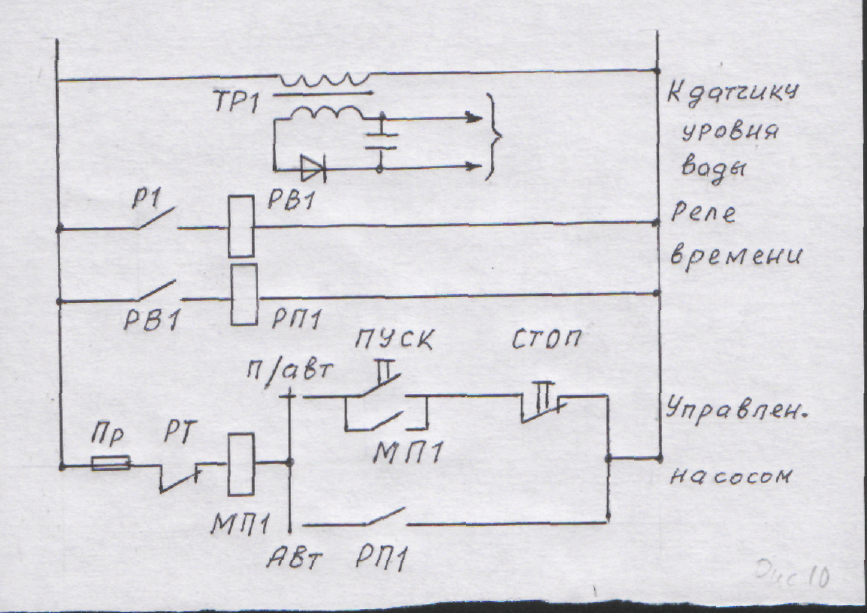 ТР1
К датчику
уровня
воды
Р1
РВ1
Реле
времени
РВ1
РП1
ПУСК
СТОП
П/авт
Управлен.
Пр
РТ
МП1
насосом
МП1
Авт
РП1
Рис 10